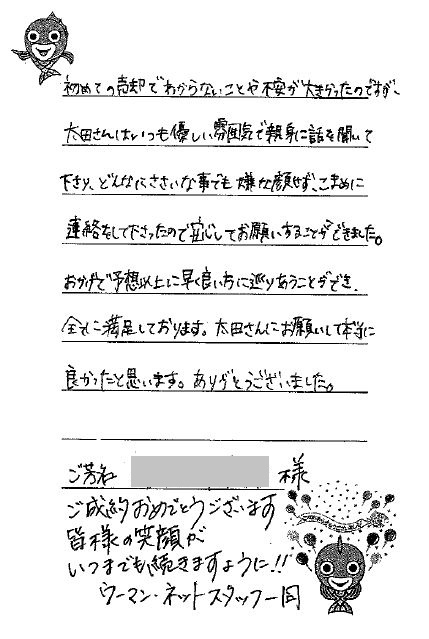 初めての売却でわからないことや不安が大きかったのですが、
太田さんはいつも優しい雰囲気で親身に話を聞いて
下さり、どんなにささいな事でも嫌な顔せず、こまめに
連絡をして下さったので安心してお願いすることができました。
おかげで予想以上に早く良い方に巡りあうことができ、
全てに満足しております。太田さんにお願いして本当に
良かったと思います。ありがとうございました。
ご芳名 様
ご成約おめでとうございます
皆様の笑顔が
いつまでも続きますように!!
ウーマン・ネットスタッフ一同